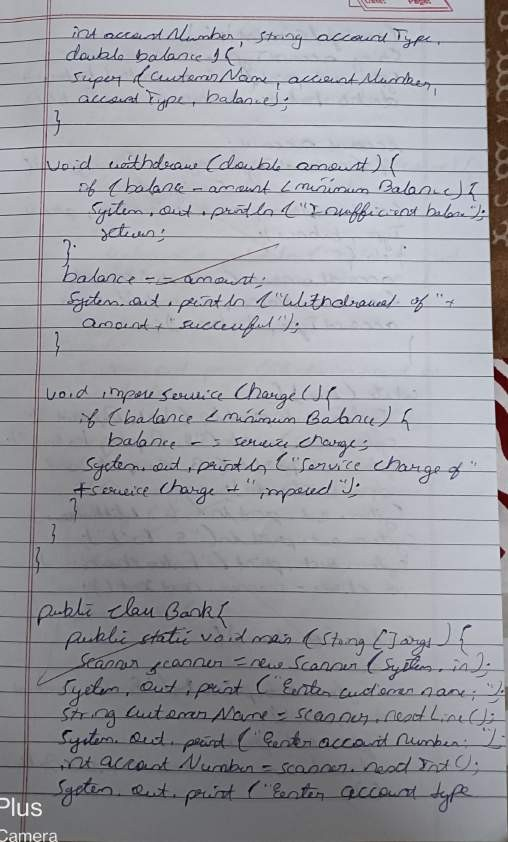 int account Number, String account Type,
double balance) {
super (customer Name, account Number,
account Type, balance);
}
void withdraw (double amount) {
if (balance - amount < minimum Balance) {
System. out. println ("Insufficient balance");
return;
}
balance -= amount;
System. out. println ("Withdrawal of " +
amount + " successful");
}
void impose service Charge () {
if (balance < minimum Balance) {
balance -= service charge;
System. out. println ("Service charge of "
+ service charge + " imposed");
}
}
}
public class Bank {
public static void main (String [] args) {
Scanner scanner = new Scanner (System. in);
System. out. print ("Enter customer name: ");
String customer Name = scanner. next Line ();
System. out. print ("Enter account number: ");
int account Number = scanner. next Int ();
System. out. print ("Enter account type
Plus
Camera